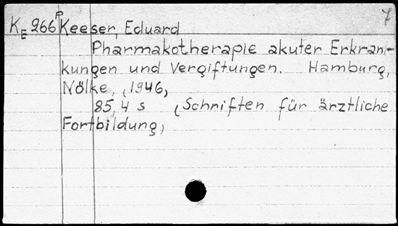 7
KE 266P Keeser, Eduard
Pharmakotherapie akuter Erkran-
kungen und Vergiftungen. Hamburg,
Nölke, (1946,
85,4 s (Schriften für ärztliche
Fortbildung,